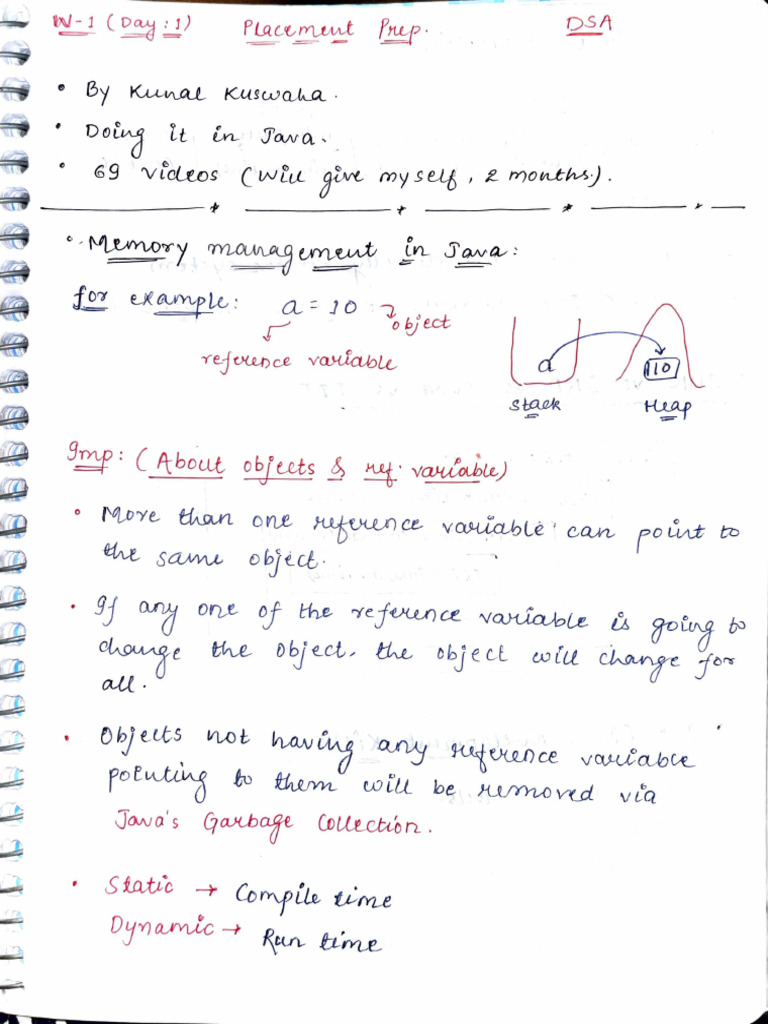 W-1 (Day:1) Placement Prep. DSA
• By Kunal Kuswaha.
• Doing it in Java.
• 69 videos (Will give myself, 2 months.).
• Memory management in Java:
for example: a = 10 object
reference variable
a 10
Stack Heap
Imp: (About objects & ref. variable)
• More than one reference variable can point to
the same object.
• If any one of the reference variable is going to
change the object, the object will change for
all.
• Objects not having any reference variable
pointing to them will be removed via
Java's Garbage Collection.
• Static → Compile time
Dynamic → Run time